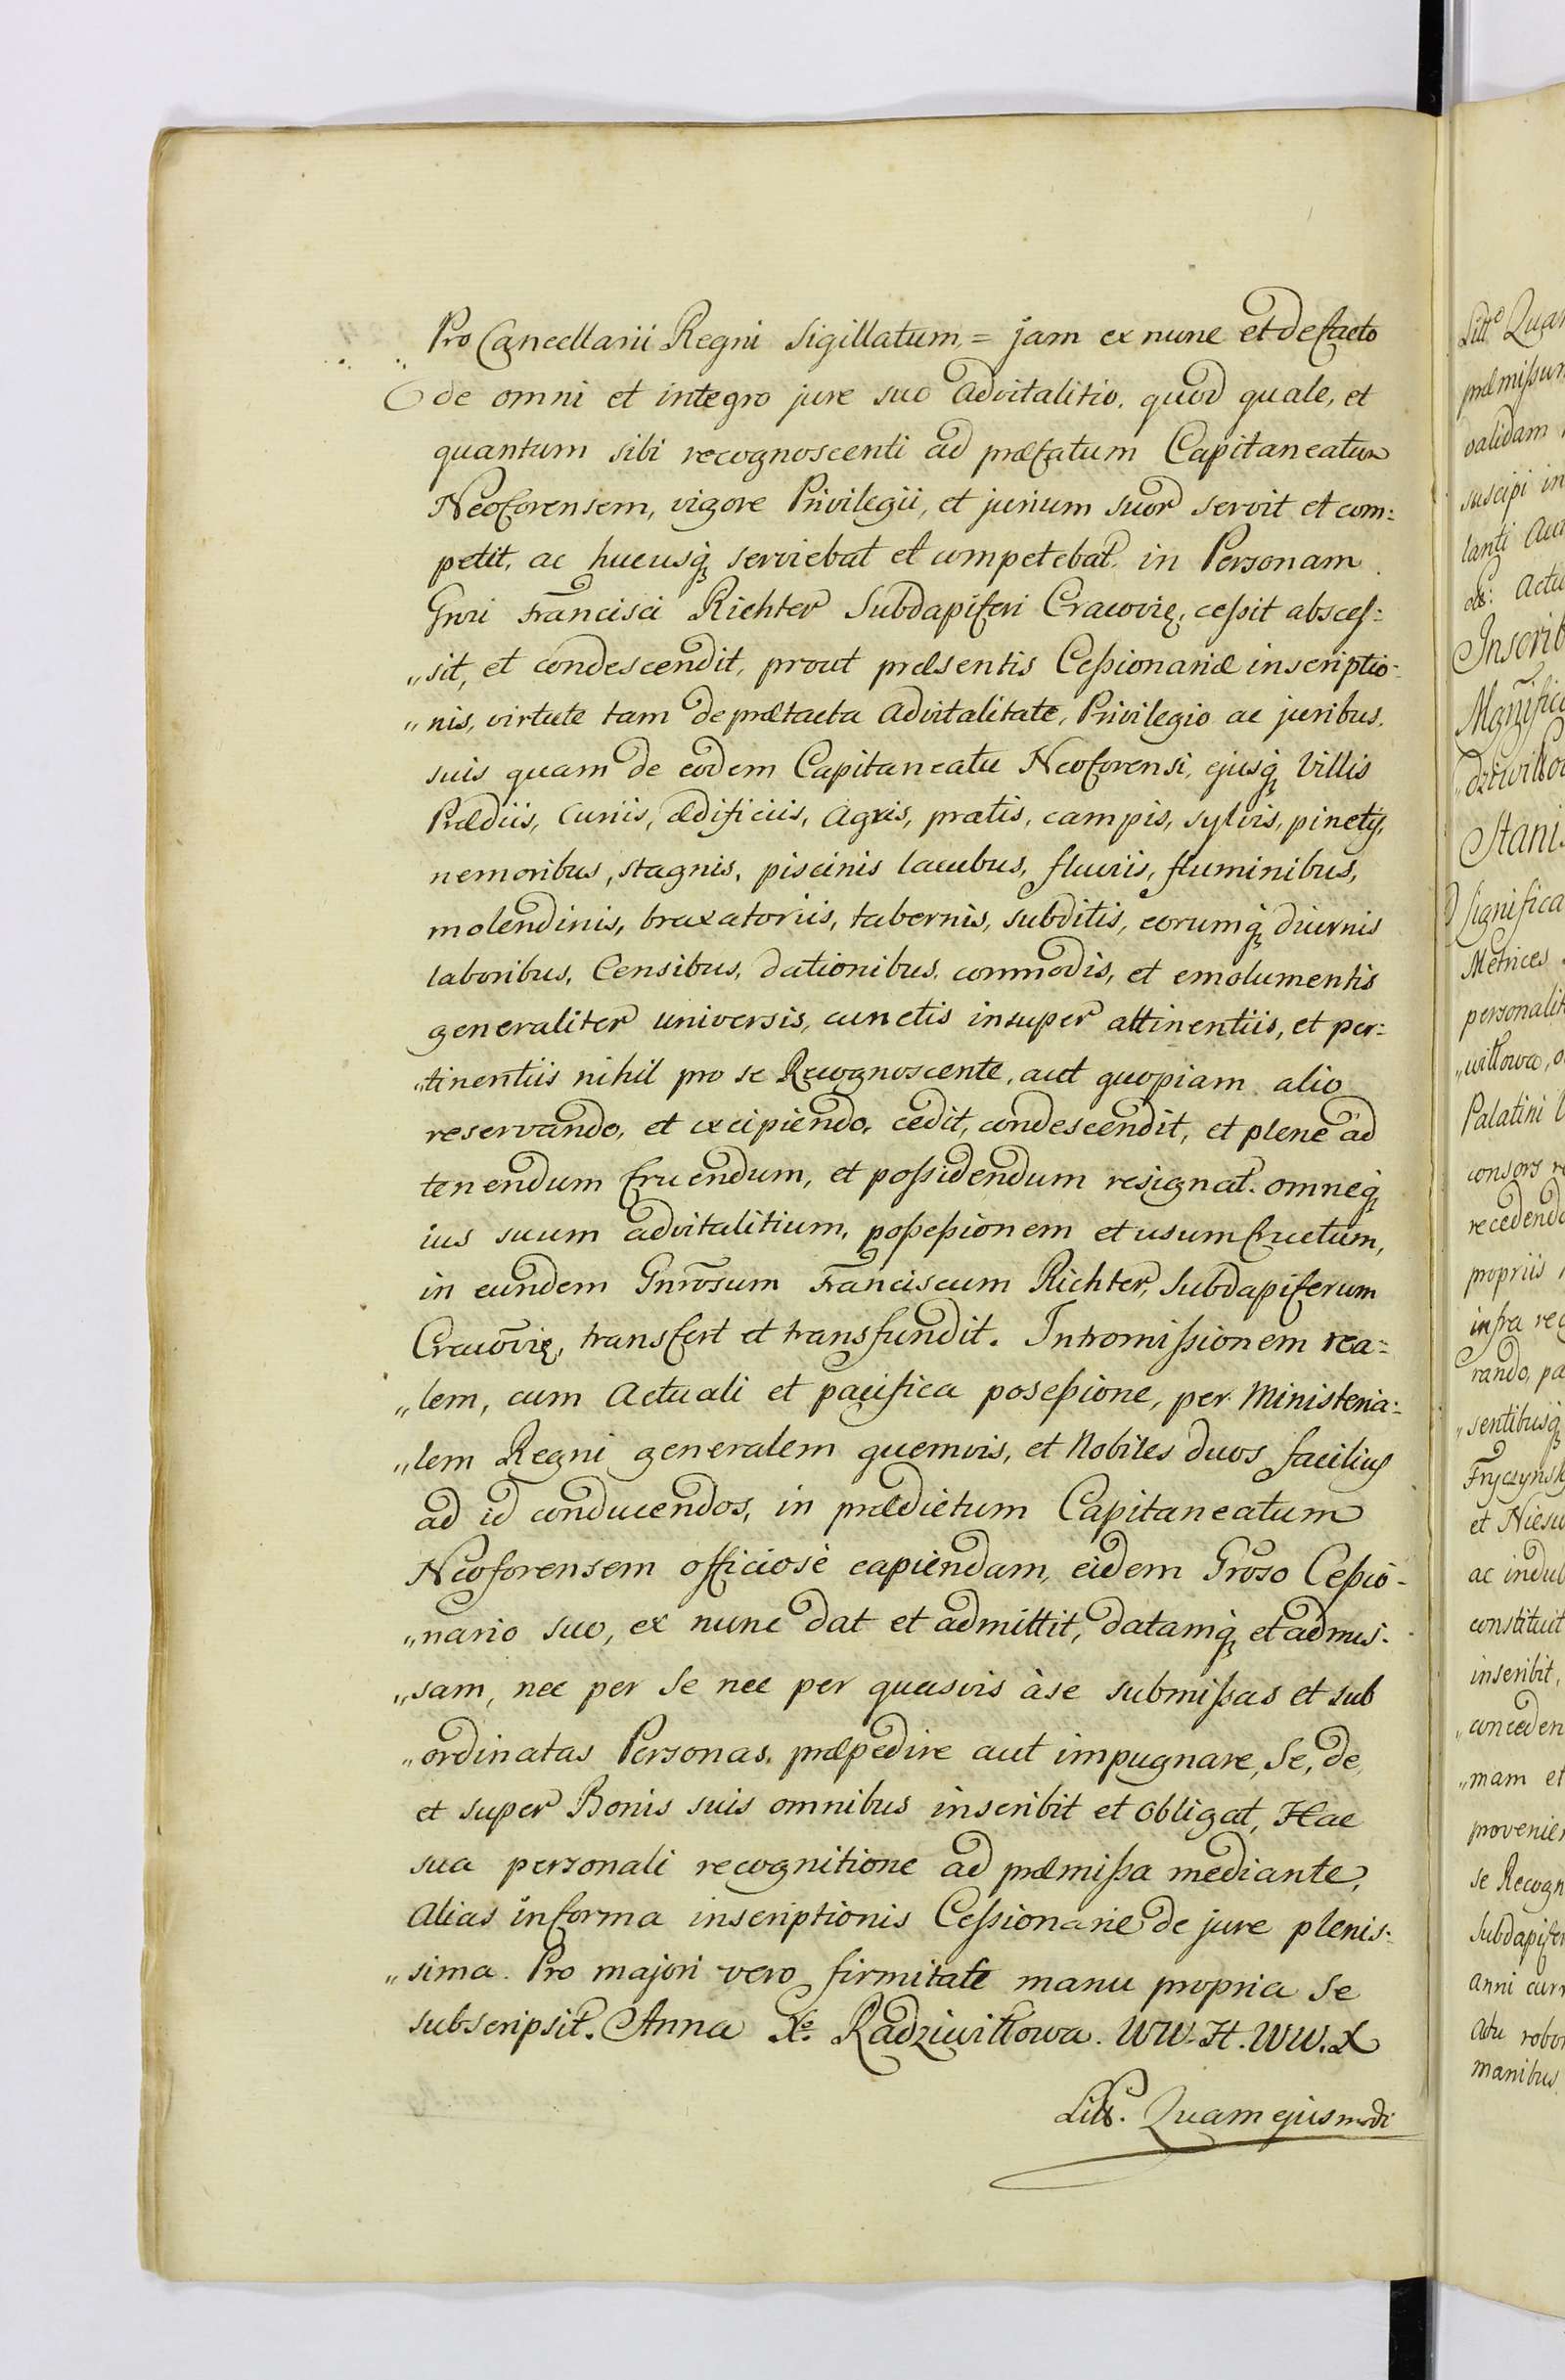 Pro Cancellarii Regni Sigillatum, = jam ex nunc et de facto
de omni et integro jure suo advitalitio, quod quale, et
quantum sibi recognoscenti ad præfatum Capitaneatum
Neoforensem, vigore Privilegii, et jurium suor servit et com:
petit, ac hucusq́ serviebat et competebat, in Personam
Gnri Francisci Richter Subdapiferi Cracovię, ceßit absces:
„sit, et condescendit, prout præsentis Ceßionariæ inscriptio-
„nis, virtute tam de prætacta advitalitate, Privilegio ac juribus
suis quam de eodem Capitaneatu Neoforensi, ejusq́ Villis
Prædiis, Curiis, ædificiis, agris, pratis, campis, sylvis, pinetis,
nemoribus, stagnis, piscinis lacubus, fluviis, fluminibus,
molendinis, braxatoriis, tabernis, subditis, eorumq́ diurnis
laboribus, Censibus, dationibus, commodis, et emolumentis
generaliter universis, cunctis insuper attinentiis, et per:
„tinentiis nihil pro se Recognoscente, aut quopiam alio
reservando, et excipiendo, cedit, condescendit, et plene ad
tenendum fruendum, et poßidendum resignat. omneq́
ius suum advitalitium, poßeßionem et usumfructum,
in eundem Gnrosum Franciscum Richter, Subdapiferum
Cracovię, transfert et transfundit. Intromißionem rea:
„lem, cum actuali et pacifica poseßione, per Ministeria:
„lem Regni generalem quemvis, et Nobiles duos facilius
ad id conducendos, in prædictum Capitaneatum
Neoforensem officiosè capiendam, eidem Groso Ceßio-
„nario suo, ex nunc dat et admittit, datamq́ et admis:
„sam, nec per se nec per quasvis à se submißas et sub
„ordinatas Personas, præpedire aut impugnare, Se, de
et super Bonis suis omnibus inscribit et obligat, Hac
sua personali recognitione ad præmißa mediante,
alias in forma inscriptionis Ceßionarie de jure plenis:
„sima. Pro majori vero firmitate manu propria se
subscripsit. Anna Xe. Radziwiłłowa. WW. H. WW. X
Litt. Quam ejusmodi